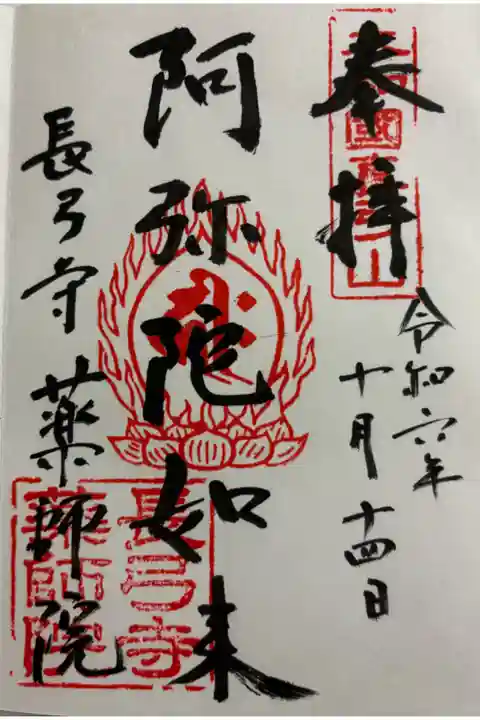 奉拝
令和六年
十月十四日
阿弥陀如来
長弓寺 薬師院
長弓寺
薬師院